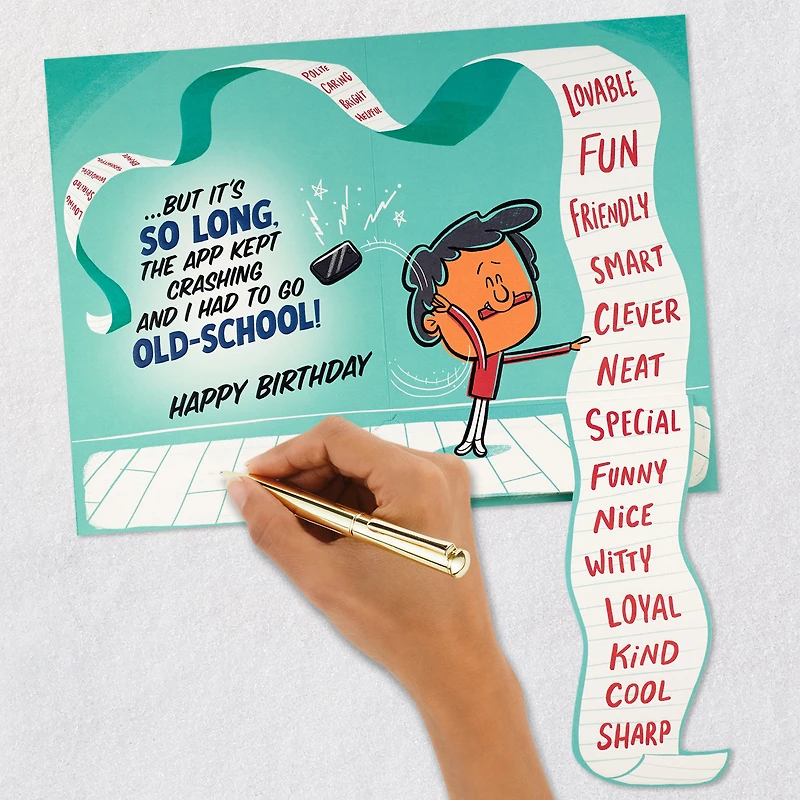 LOVING
SPIRITED
WONDERFUL
POLITE
CARING
BRIGHT
HELPFUL
...BUT IT'S
SO LONG,
THE APP KEPT
CRASHING
AND I HAD TO GO
OLD-SCHOOL!
HAPPY BIRTHDAY
LOVABLE
FUN
FRiENDLY
SMART
CLEVER
NEAT
SPECiAL
FUNNY
NiCE
WiTTY
LOYAL
KiND
COOL
SHARP